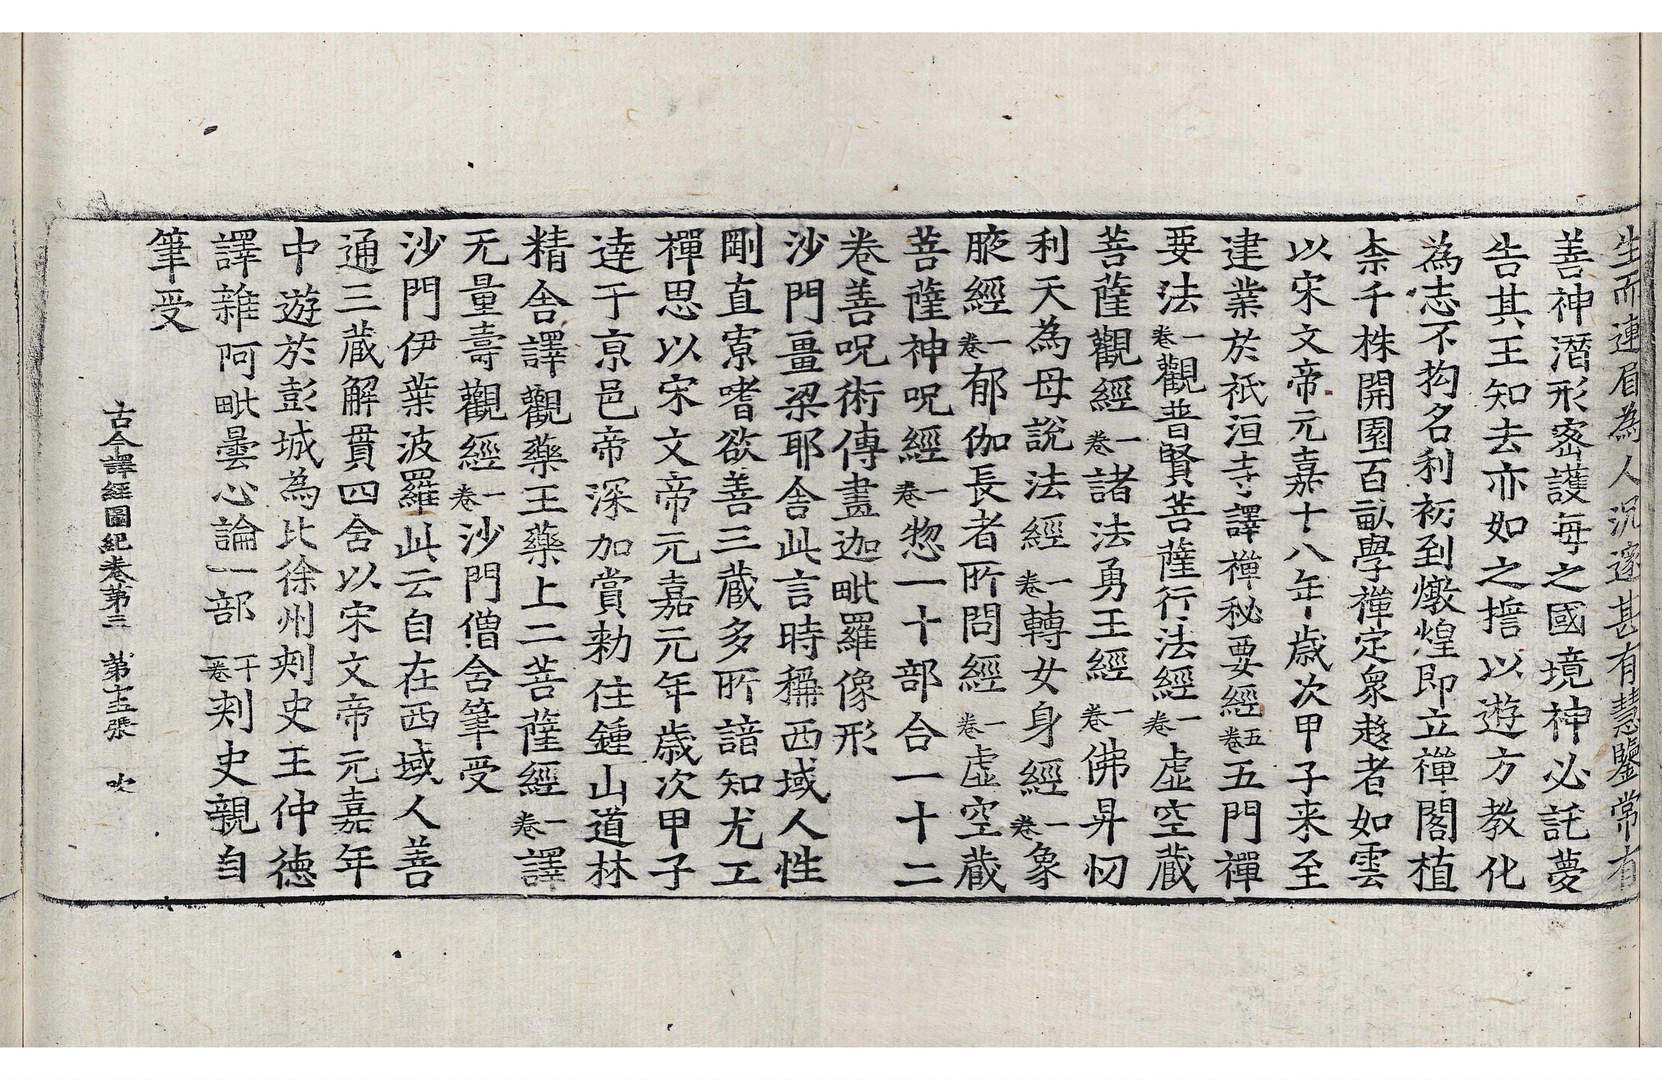 生而連眉為人沉邃甚有慧鑒常有
善神潛形密護每之國境神必託夢
告其王知去亦如之捨以遊方教化
為志不拘名利初到燉煌即立禪閣植
柰千株開園百畝學禪定衆趍者如雲
以宋文帝元嘉十八年歲次甲子来至
建業於祇洹寺譯禪秘要經五卷五門禪
要法一卷觀普賢菩薩行法經一卷虛空藏
菩薩觀經一卷諸法勇王經一卷佛昇忉
利天為母說法經一卷轉女身經一卷象
腋經一卷郁伽長者所問經一卷虛空藏
菩薩神呪經一卷惣一十部合一十二
卷善呪術傳畫迦毗羅像形
沙門畺梁耶舍此言時稱西域人性
剛直寡嗜欲善三藏多所諳知尤工
禪思以宋文帝元嘉元年歲次甲子
逹于京邑帝深加賞勑住鍾山道林
精舍譯觀藥王藥上二菩薩經一卷譯
无量壽觀經一卷沙門僧舍筆受
沙門伊葉波羅此云自在西域人善
通三藏解貫四含以宋文帝元嘉年
中遊於彭城為比徐州刾史王仲德
譯雜阿毗曇心論一部十一卷刾史親自
筆受
古今譯經圖紀卷第三 第十五張